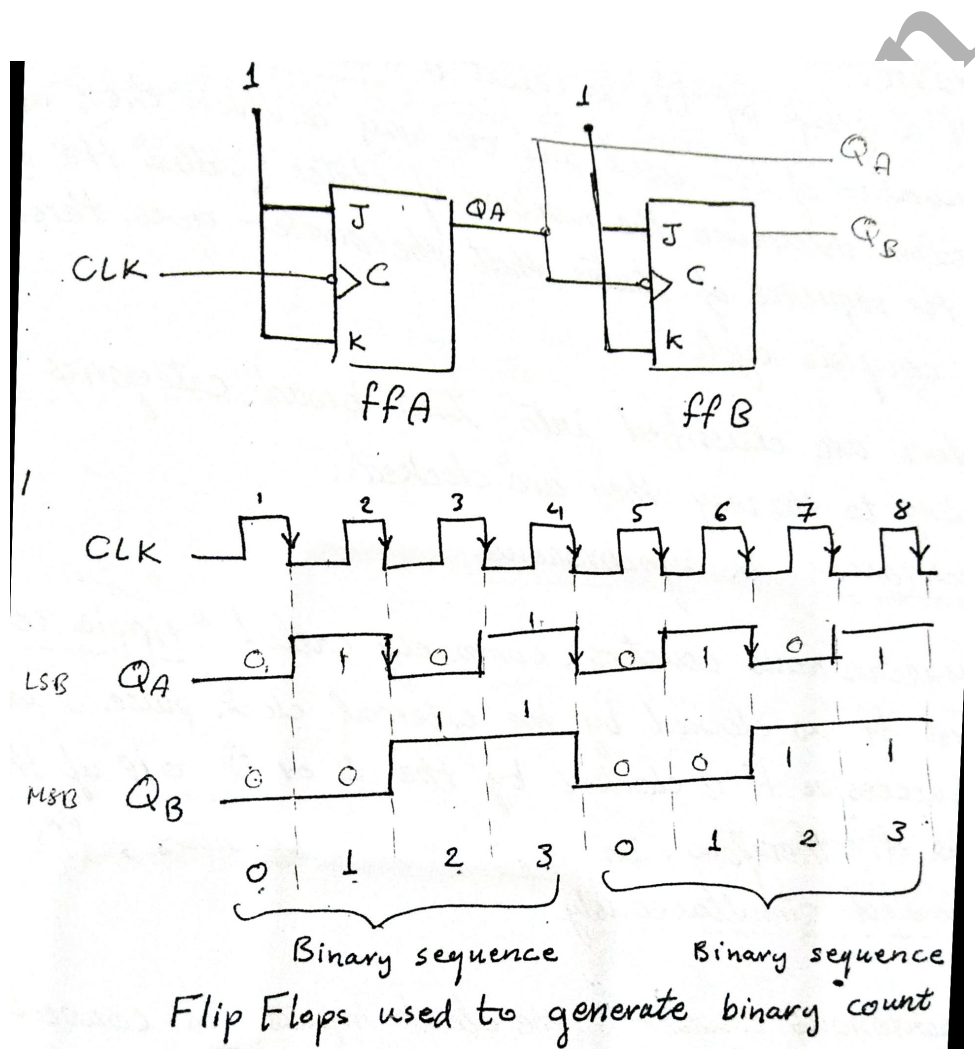 1 1
QA
J QA J QB
CLK C C
K K
ffA ffB
1 2 3 4 5 6 7 8
CLK
LSB QA 0 1 0 1 0 1 0 1
MSB QB 0 0 1 1 0 0 1 1
0 1 2 3 0 1 2 3
Binary sequence Binary sequence
Flip Flops used to generate binary count